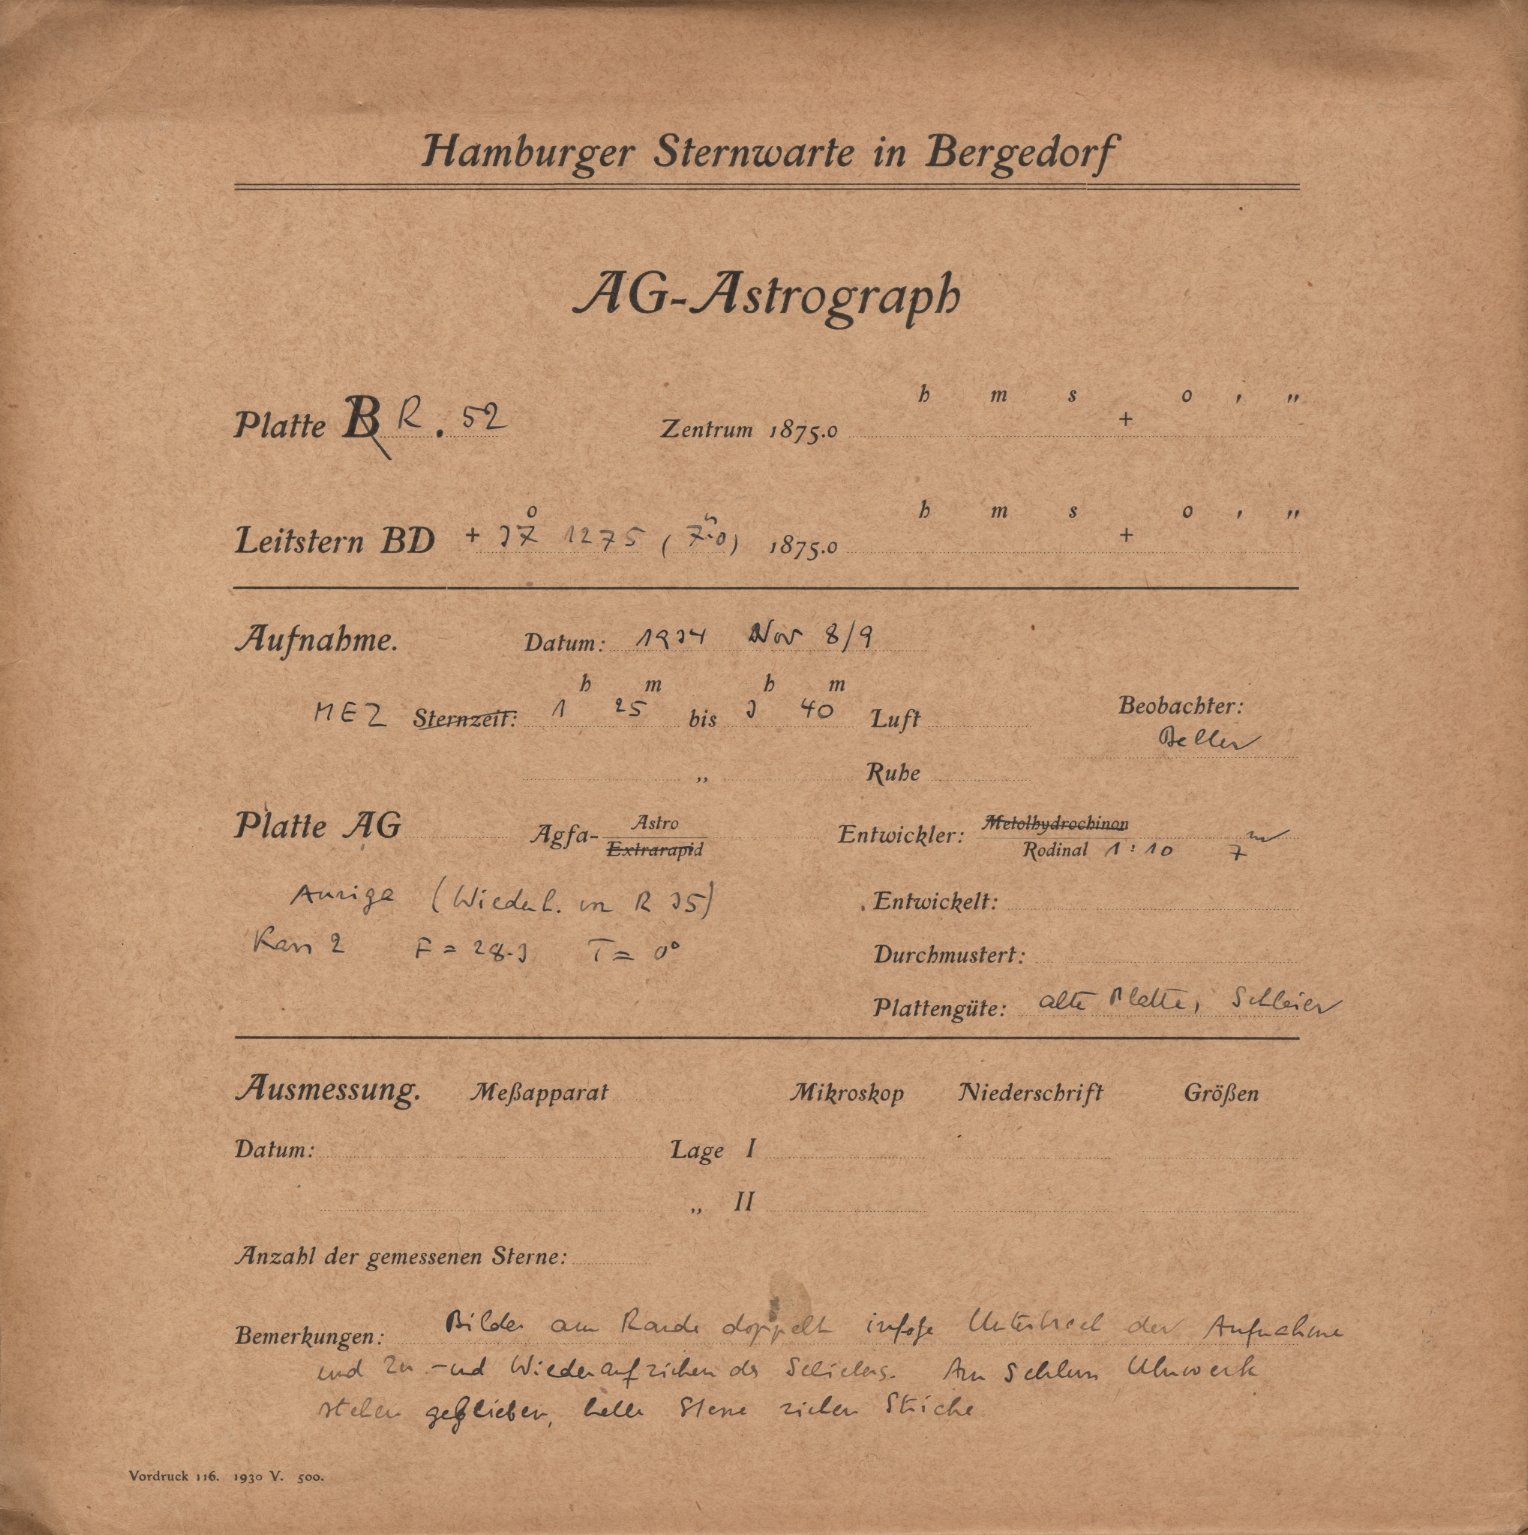 Hamburger Sternwarte in Bergedorf
AG-Astrograph
h m s o ' "
Platte B R . 52 Zentrum 1875.0 +
o m h m s o ' "
Leitstern BD + 37 1275 (7.0) 1875.0 +
Aufnahme. Datum: 1934 Nov 8/9
h m h m
MEZ Sternzeit: 1 25 bis 3 40 Luft Beobachter:
Beller
„ Ruhe
Platte AG Agfa- Astro Extrarapid Entwickler: Metolhydrochinon
Rodinal 1:10 7 m
Auriga (Wiederh. von R 35) Entwickelt:
Kass 2 F = 28.3 T = 0° Durchmustert:
Plattengüte: alte Platte, Schleier
Ausmessung. Meßapparat Mikroskop Niederschrift Größen
Datum: Lage I
„ II
Anzahl der gemessenen Sterne:
Bemerkungen: Bilder am Rande doppelt infolge Unterbrech der Aufnahme
und Zu- und Wiederaufziehen des Schiebers. Am Schluss Uhrwerk
stehen geblieben, helle Sterne ziehen Striche
Vordruck 116. 1930 V. 500.